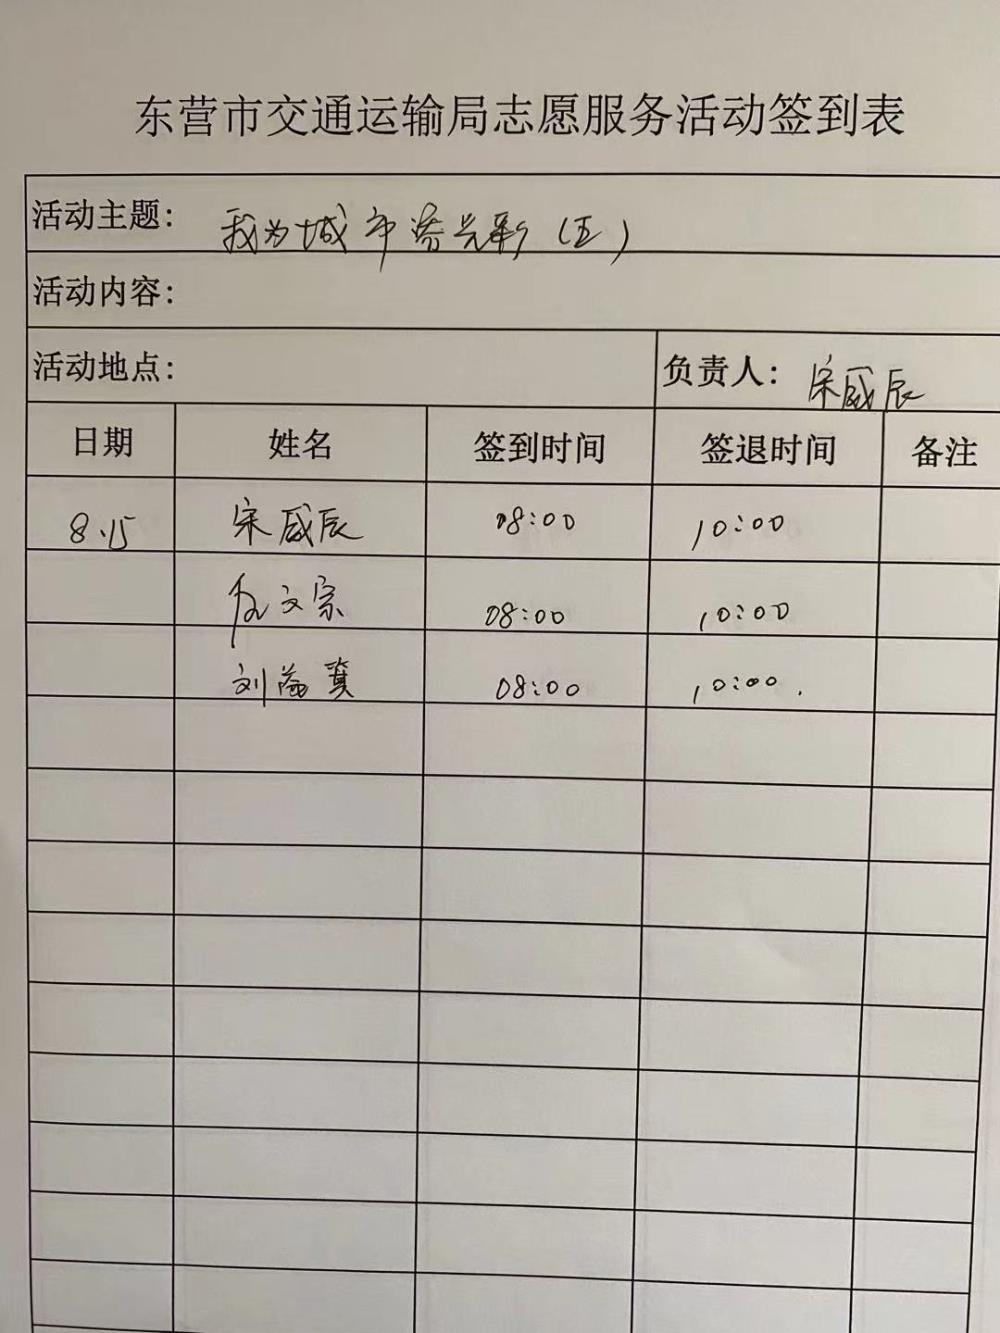 东营市交通运输局志愿服务活动签到表
活动主题： 我为城市添光彩（五）
活动内容：
活动地点： 负责人： 宋威辰
日期 姓名 签到时间 签退时间 备注
8.15 宋威辰 08:00 10:00
文宗 08:00 10:00
刘益冀 08:00 10:00.